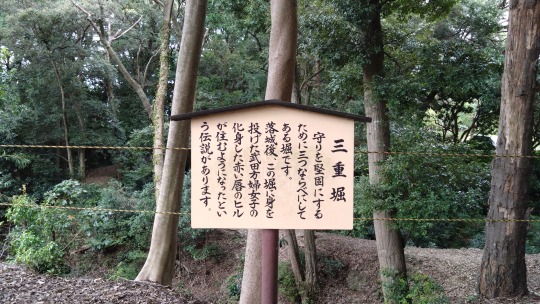 三重堀
守りを堅固にする
ために三つならべにして
ある堀です。
落城後、この堀に身を
投げた武田方婦女子の
化身した赤い唇のヒル
が住むようになったとい
う伝説があります。